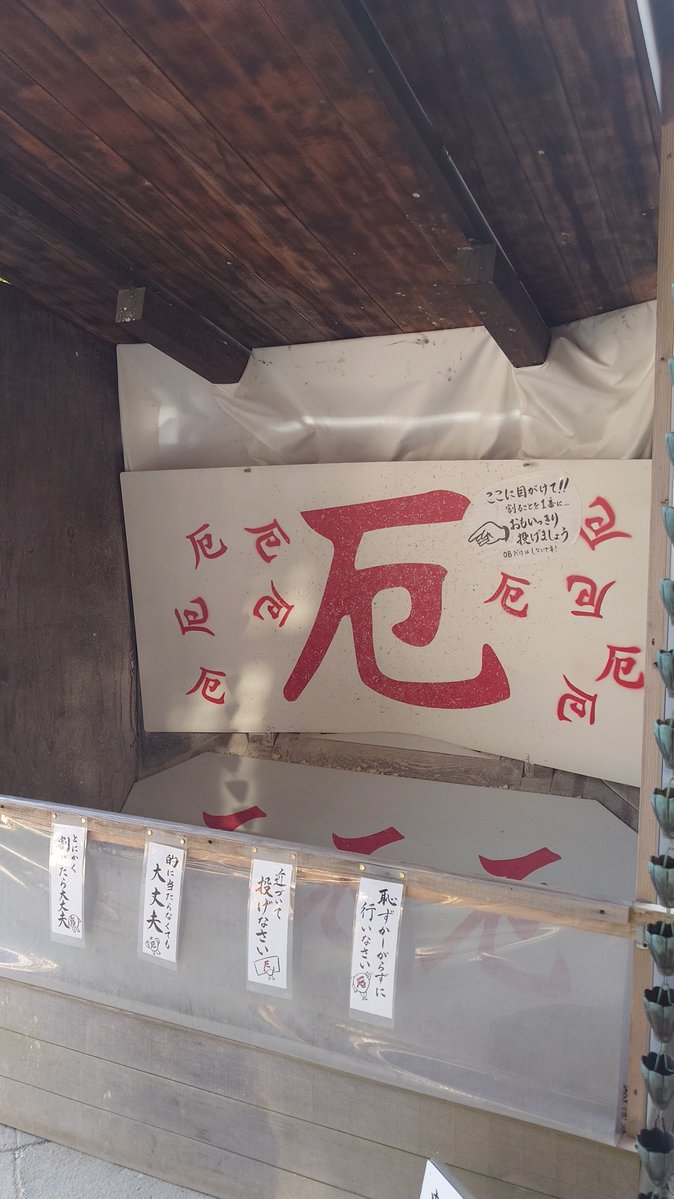 厄
ここに目がけて!!
割ることを1番に…
おもいっきり
投げましょう
OBだけはしないナキ!
厄
厄
厄
厄
厄
厄
厄
厄
厄
厄
厄
恥ずかしがらずに
行いなさい
近づいて
投げなさい
的に当たらなくても
大丈夫
とにかく
割れたら大丈夫